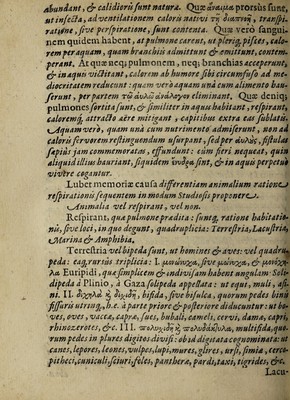 abundant, & calidioris sunt naturæ. Quæ ἄναιμα prorsus sunt,
ut insecta, ad ventilationem caloris nativi τῇ διαπνοῇ, transpi-
ratione, sive perspiratione, sunt contenta. Quæ verò sangui-
nem quidem habent, at pulmone carent, ut pleriq; pisces, calo-
rem per aquam, quam branchiis admittunt & emittunt, contem-
perant. At quæ neq; pulmonem, neq; branchias acceperunt,
& in aquis victitant, calorem ab humore sibi circumfuso ad me-
diocritatem reducunt: quam verò aquam unà cum alimento hau-
serunt, per partem eliminant. Quæ deniq;
pulmones sortita sunt, & similiter in aquis habitant, respirant,
caloremq; attracto aëre mitigant, capitibus extra eas sublatis.
Aquam verò, quam unà cum nutrimento admiserunt, non ad
caloris fervorem restinguendum usurpant, sed per αὐλὸς, fistulas
sapius jam commemoratas, effundunt: cùm fieri nequeat, quin
aliquid illius hauriant, siquidem ἔνυδρα sint, & in aquis perpetuò
vivere cogantur.
Lubet memoriæ causa differentiam animalium ratione
respirationis sequentem in modum Studiosis proponere.
Animalia vel respirant, vel non.
Respirant, quæ pulmone prædita: suntq; ratione habitatio-
nis, sive loci, in quo degunt, quadruplicia: Terrestria, Lacustria,
Marina & Amphibia.
Terrestria vel bipeda sunt, ut homines & aves: vel quadru-
peda: eaq; rursus triplicia: I. μονώνυχα, sive μώνυχα, &
Euripidi, quæ simplicem & indivisam habent ungulam: Soli-
dipeda à Plinio, à Gaza solipeda appellata: ut equi, muli, asi-
ni. II. διχηλὰ ἢ διχιδῆ, bifida, sive bisulca, quorum pedes binâ
fissurâ utrinq;, h.e. à parte priore & posteriore diducuntur: ut bo-
ves, oves, vaccæ, capræ, sues, bubali, cameli, cervi, damæ, capri,
rhinozerotes, &c. III. πολυχιδῆ ἢ πολυδάκτυλα, multifida, quo-
rum pedes in plures digitos divisi: ob id digitata cognominata: ut
canes, lepores, leones, vulpes, lupi, mures, glires, ursi, simiæ, cerco-
pitheci, cuniculi, sciuri, feles, pantheræ, pardi, taxi, tigrides, &c.
Lacu-